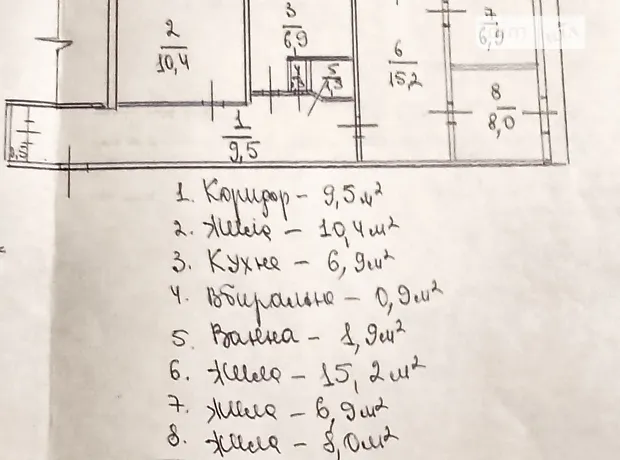 2
10,4
3
6,9
6
15,2
7
6,9
8
8,0
4
5
1
9,5
1. Коридор – 9,5 м²
2. Жила – 10,4 м²
3. Кухня – 6,9 м²
4. Вбиральня – 0,9 м²
5. Ванна – 1,9 м²
6. Жила – 15,2 м²
7. Жила – 6,9 м²
8. Жила – 8,0 м²